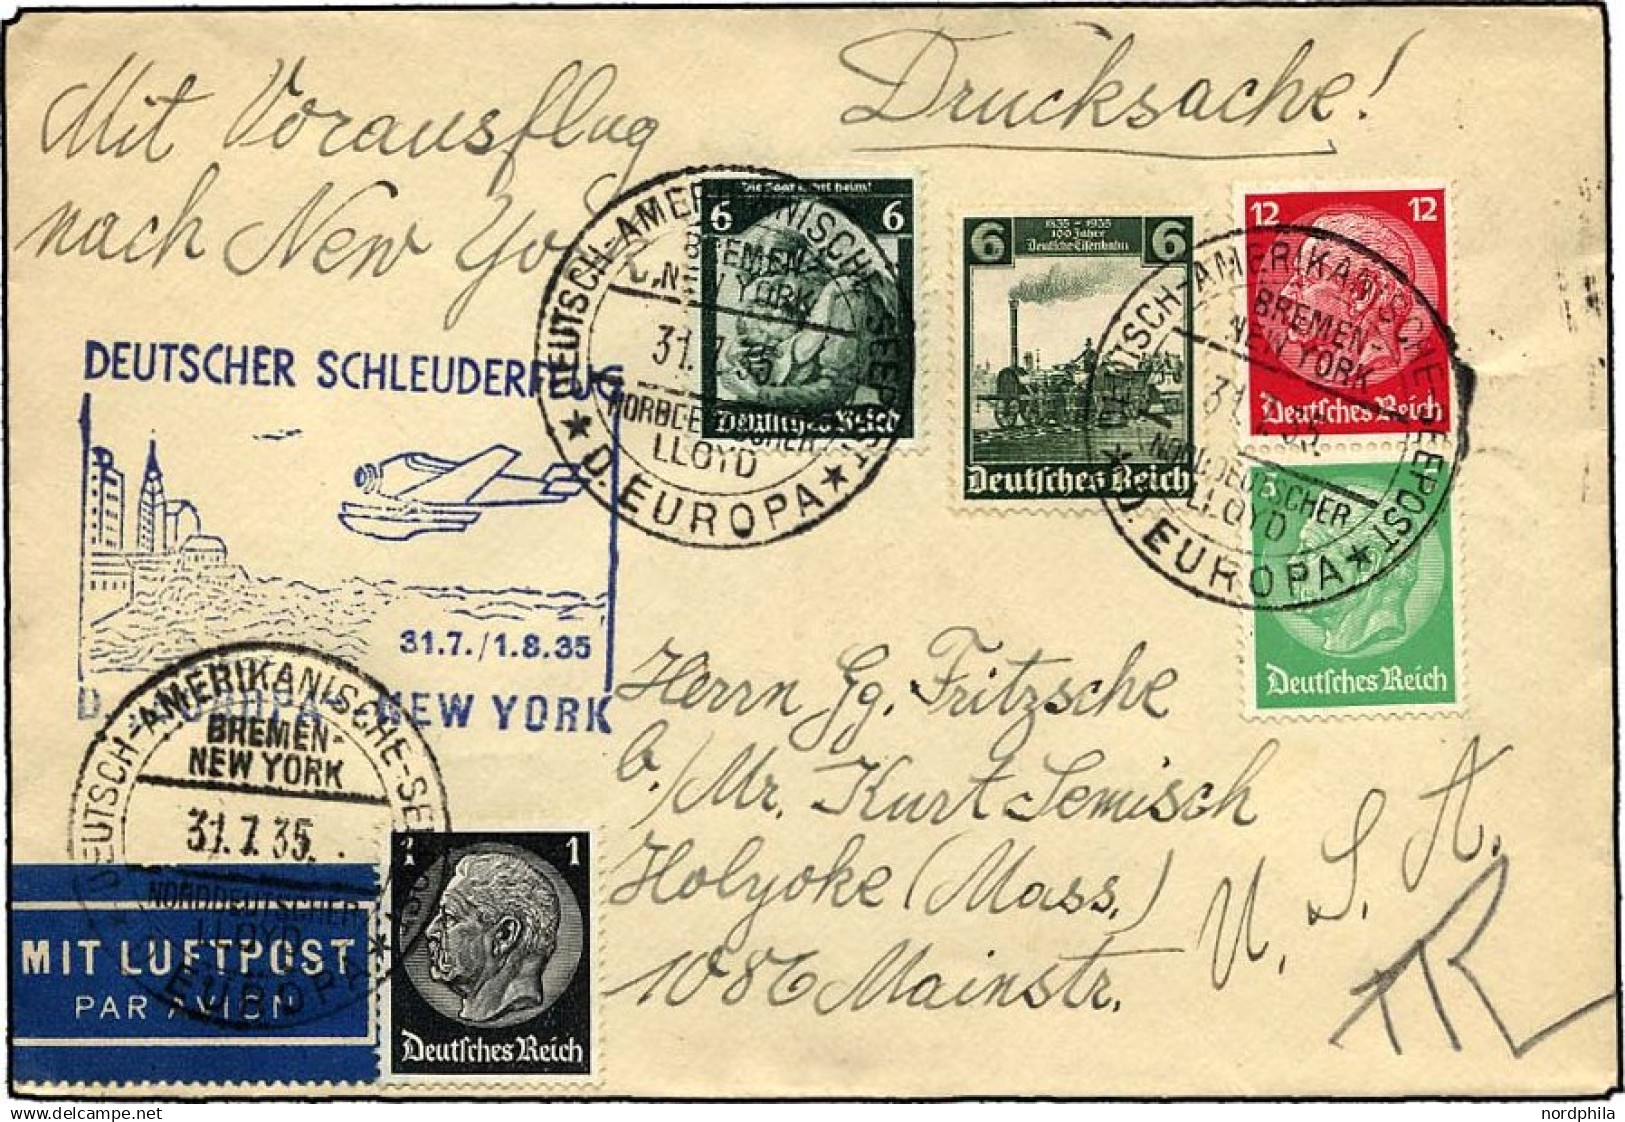 Mit Vorausflug
nach New Yo
Drucksache!
DEUTSCHER SCHLEUDERFLUG
31.7./1.8.35
D. EUROPA - NEW YORK
DEUTSCH-AMERIKANISCHE SEEPOST
BREMEN-
NEW YORK
31.7.35
NORDDEUTSCHER
LLOYD
★ D. EUROPA ★
Die Saar kehrt heim!
6 6
Deutsches Reich
6 6
1835 - 1935
100 Jahre
Deutsche Eisenbahn
Deutsches Reich
DEUTSCH-AMERIKANISCHE-SEEPOST
BREMEN-
NEW YORK
31.7.35
NORDDEUTSCHER
LLOYD
★ D. EUROPA ★
12 12
Deutsches Reich
5
Deutsches Reich
DEUTSCH-AMERIKANISCHE-SEEPOST
BREMEN-
NEW YORK
31.7.35.
NORDDEUTSCHER
LLOYD
★ EUROPA ★
MIT LUFTPOST
PAR AVION
1 1
Deutsches Reich
Herrn Gg. Fritzsche
b./Mr. Kurt Semisch
Holyoke (Mass.)
1086 Mainstr.
U. S. A.
nordphila